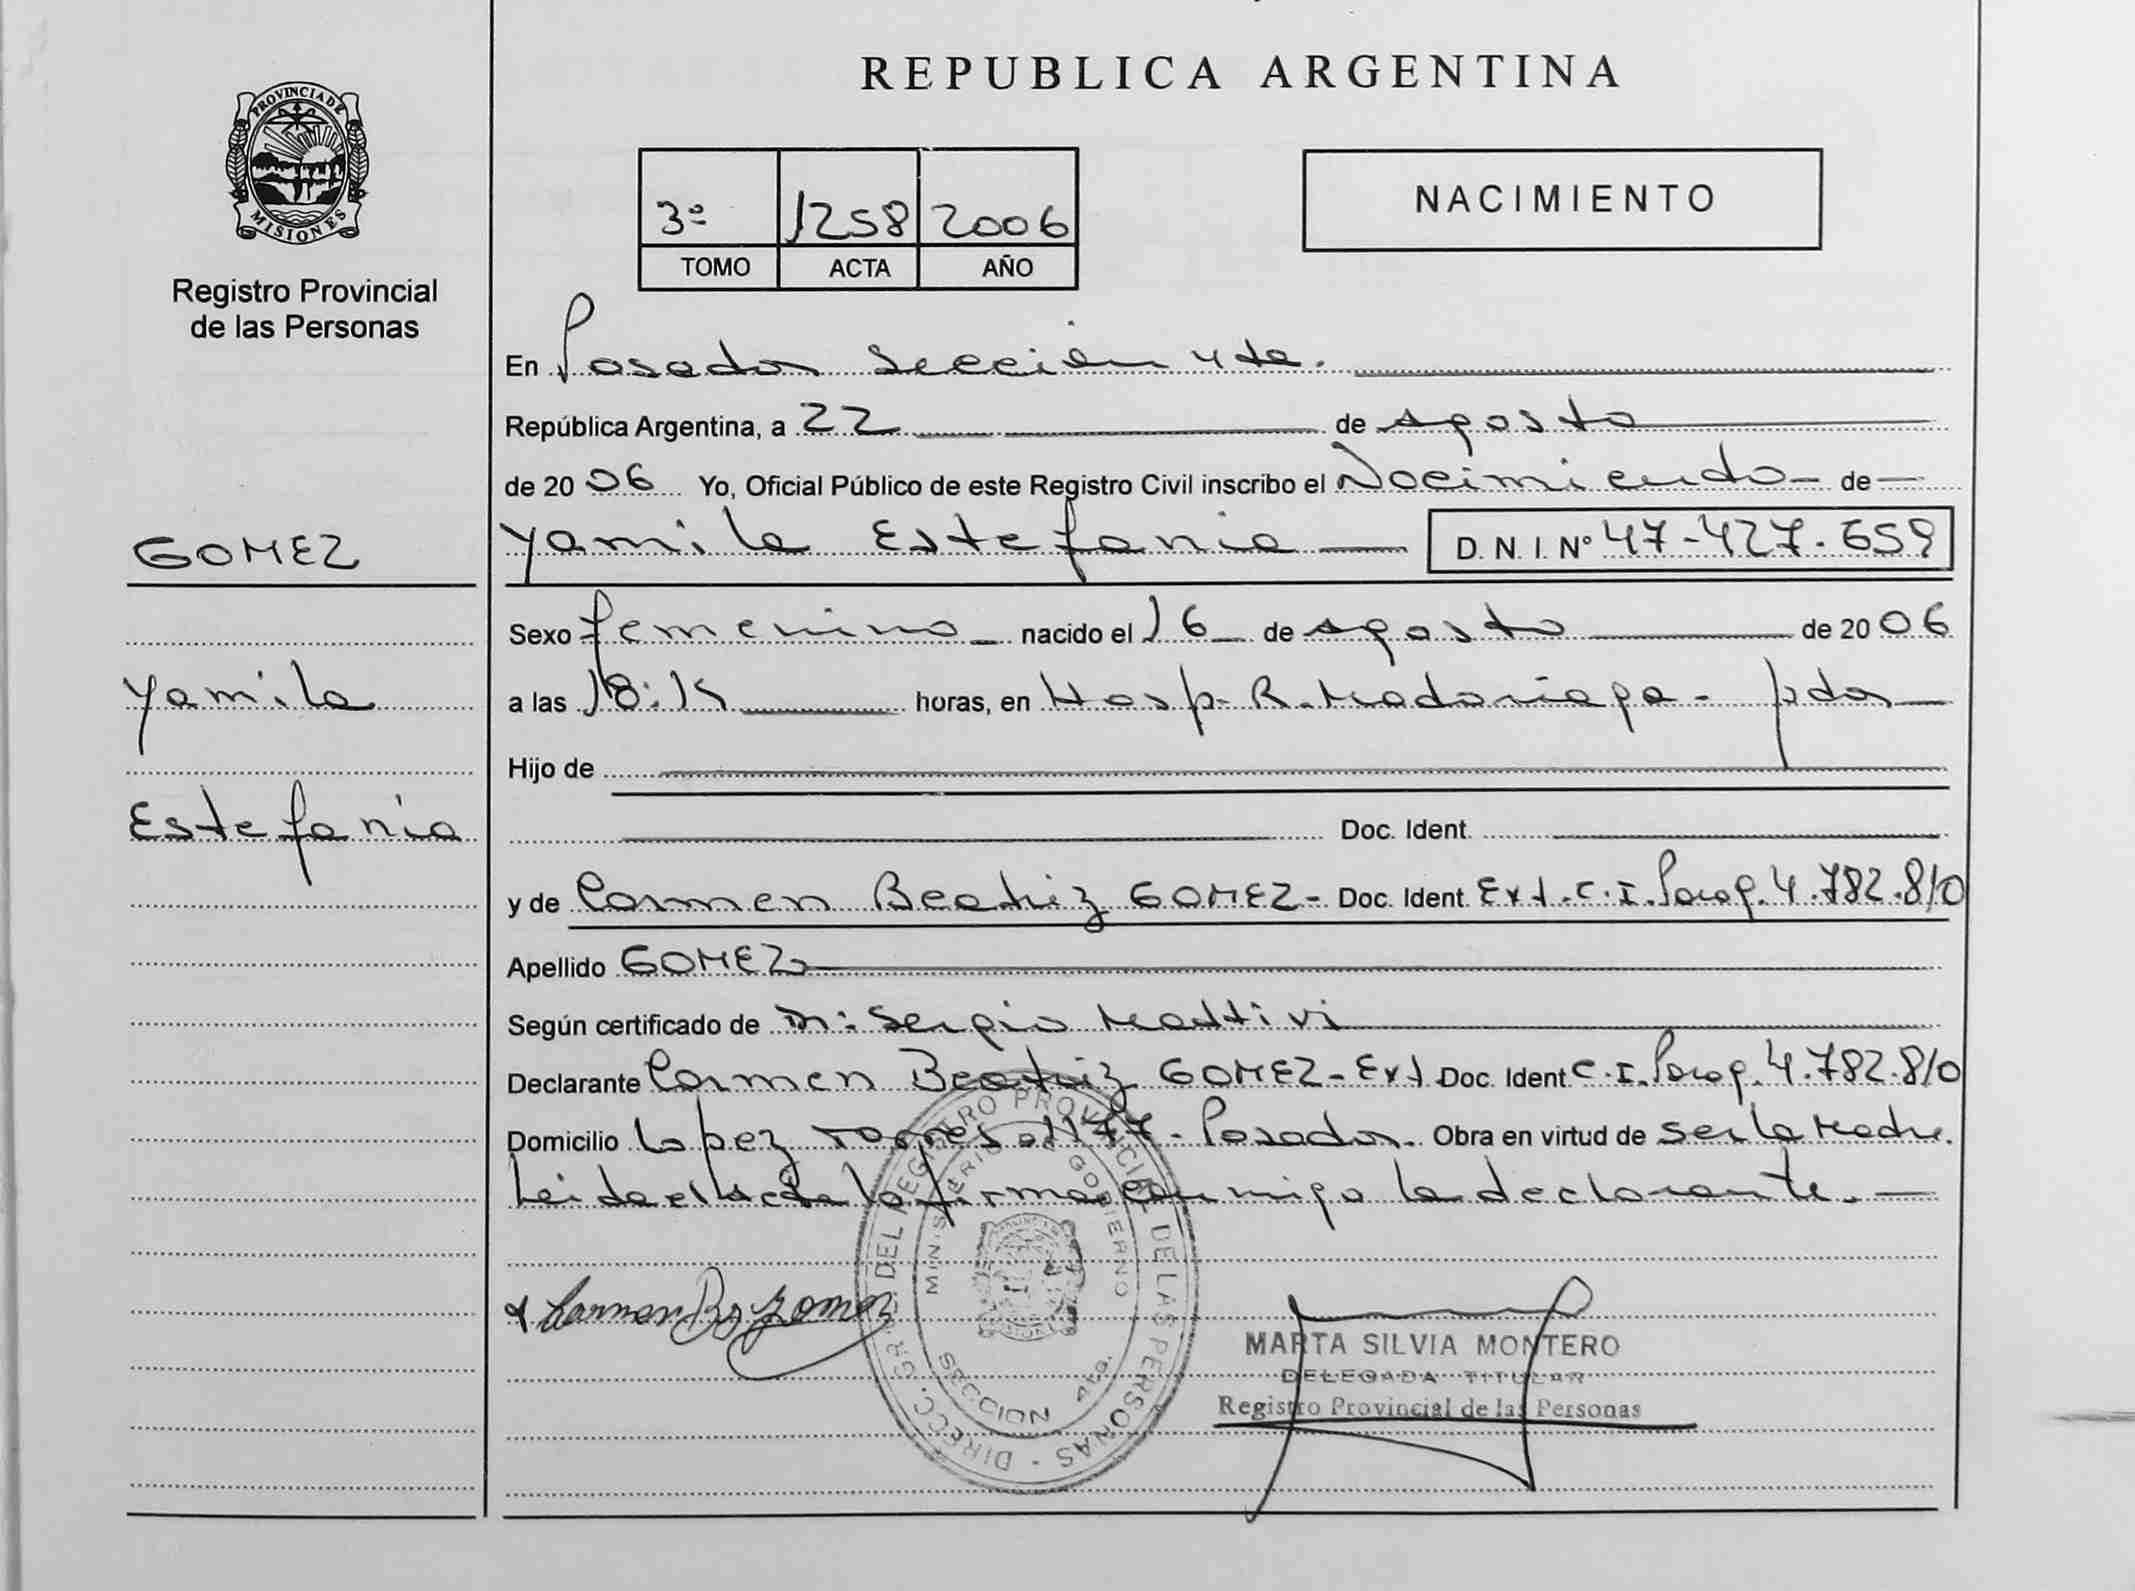 REPUBLICA ARGENTINA
PROVINCIA DE MISIONES
Registro Provincial
de las Personas
3º 1258 2006
TOMO ACTA AÑO
NACIMIENTO
En Posadas Sección 4ta.
República Argentina, a 22 de agosto
de 2006 Yo, Oficial Público de este Registro Civil inscribo el Nacimiento de
Yamila Estefania D. N. I. Nº 47-427.659
GOMEZ
Yamila
Estefania
Sexo femenino nacido el 16 de agosto de 2006
a las 18:15 horas, en Hosp. R. Madariaga - pdas
Hijo de
Doc. Ident.
y de Carmen Beatriz GOMEZ- Doc. Ident. Ext. C.I. Parag. 4.782.810
Apellido GOMEZ
Según certificado de Dr: Sergio Mattivi
Declarante Carmen Beatriz GOMEZ-Ext Doc. Ident C.I. Parag. 4.782.810
Domicilio Lopez Torres 1177- Posadas. Obra en virtud de ser la Madre.
Leida el Acta la firma conmigo la declarante.
Carmen Bz Gomez
DIRECC. GRAL. DEL REGISTRO PROVINCIAL DE LAS PERSONAS -
MINISTERIO DE GOBIERNO
SECCION 4ta.
MARTA SILVIA MONTERO
DELEGADA TITULAR
Registro Provincial de las Personas